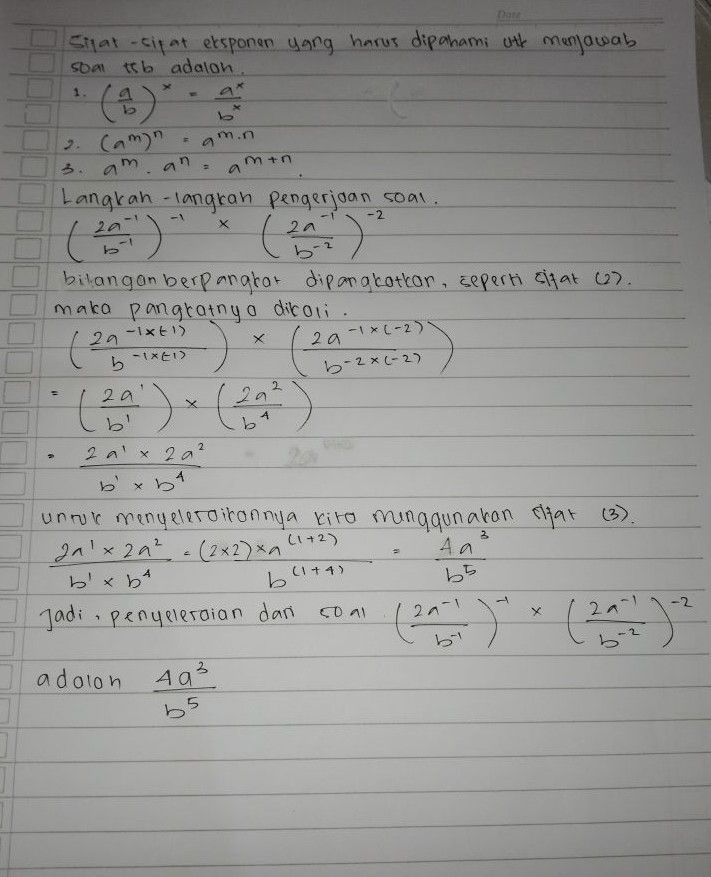 Date
Sifat-sifat eksponen yang harus dipahami utk menjawab
soal tsb adalah.
1. (a/b)^x = a^x/b^x
2. (a^m)^n = a^m.n
3. a^m . a^n = a^m+n.
Langkah-langkah pengerjaan soal.
(2a^-1/b^-1)^-1 × (2a^-1/b^-2)^-2
bilangan berpangkat dipangkatkan, seperti sifat (2).
maka pangkatnya dikali.
(2a^-1×(-1)/b^-1×(-1)) × (2a^-1×(-2)/b^-2×(-2))
= (2a^1/b^1) × (2a^2/b^4)
= 2a^1 × 2a^2/b^1 × b^4
untuk menyelesaikannya kita menggunakan sifat (3).
2a^1 × 2a^2/b^1 × b^4 = (2×2)×a^(1+2)/b^(1+4) = 4a^3/b^5
Jadi, penyelesaian dari soal (2a^-1/b^-1)^-1 × (2a^-1/b^-2)^-2
adalah 4a^3/b^5